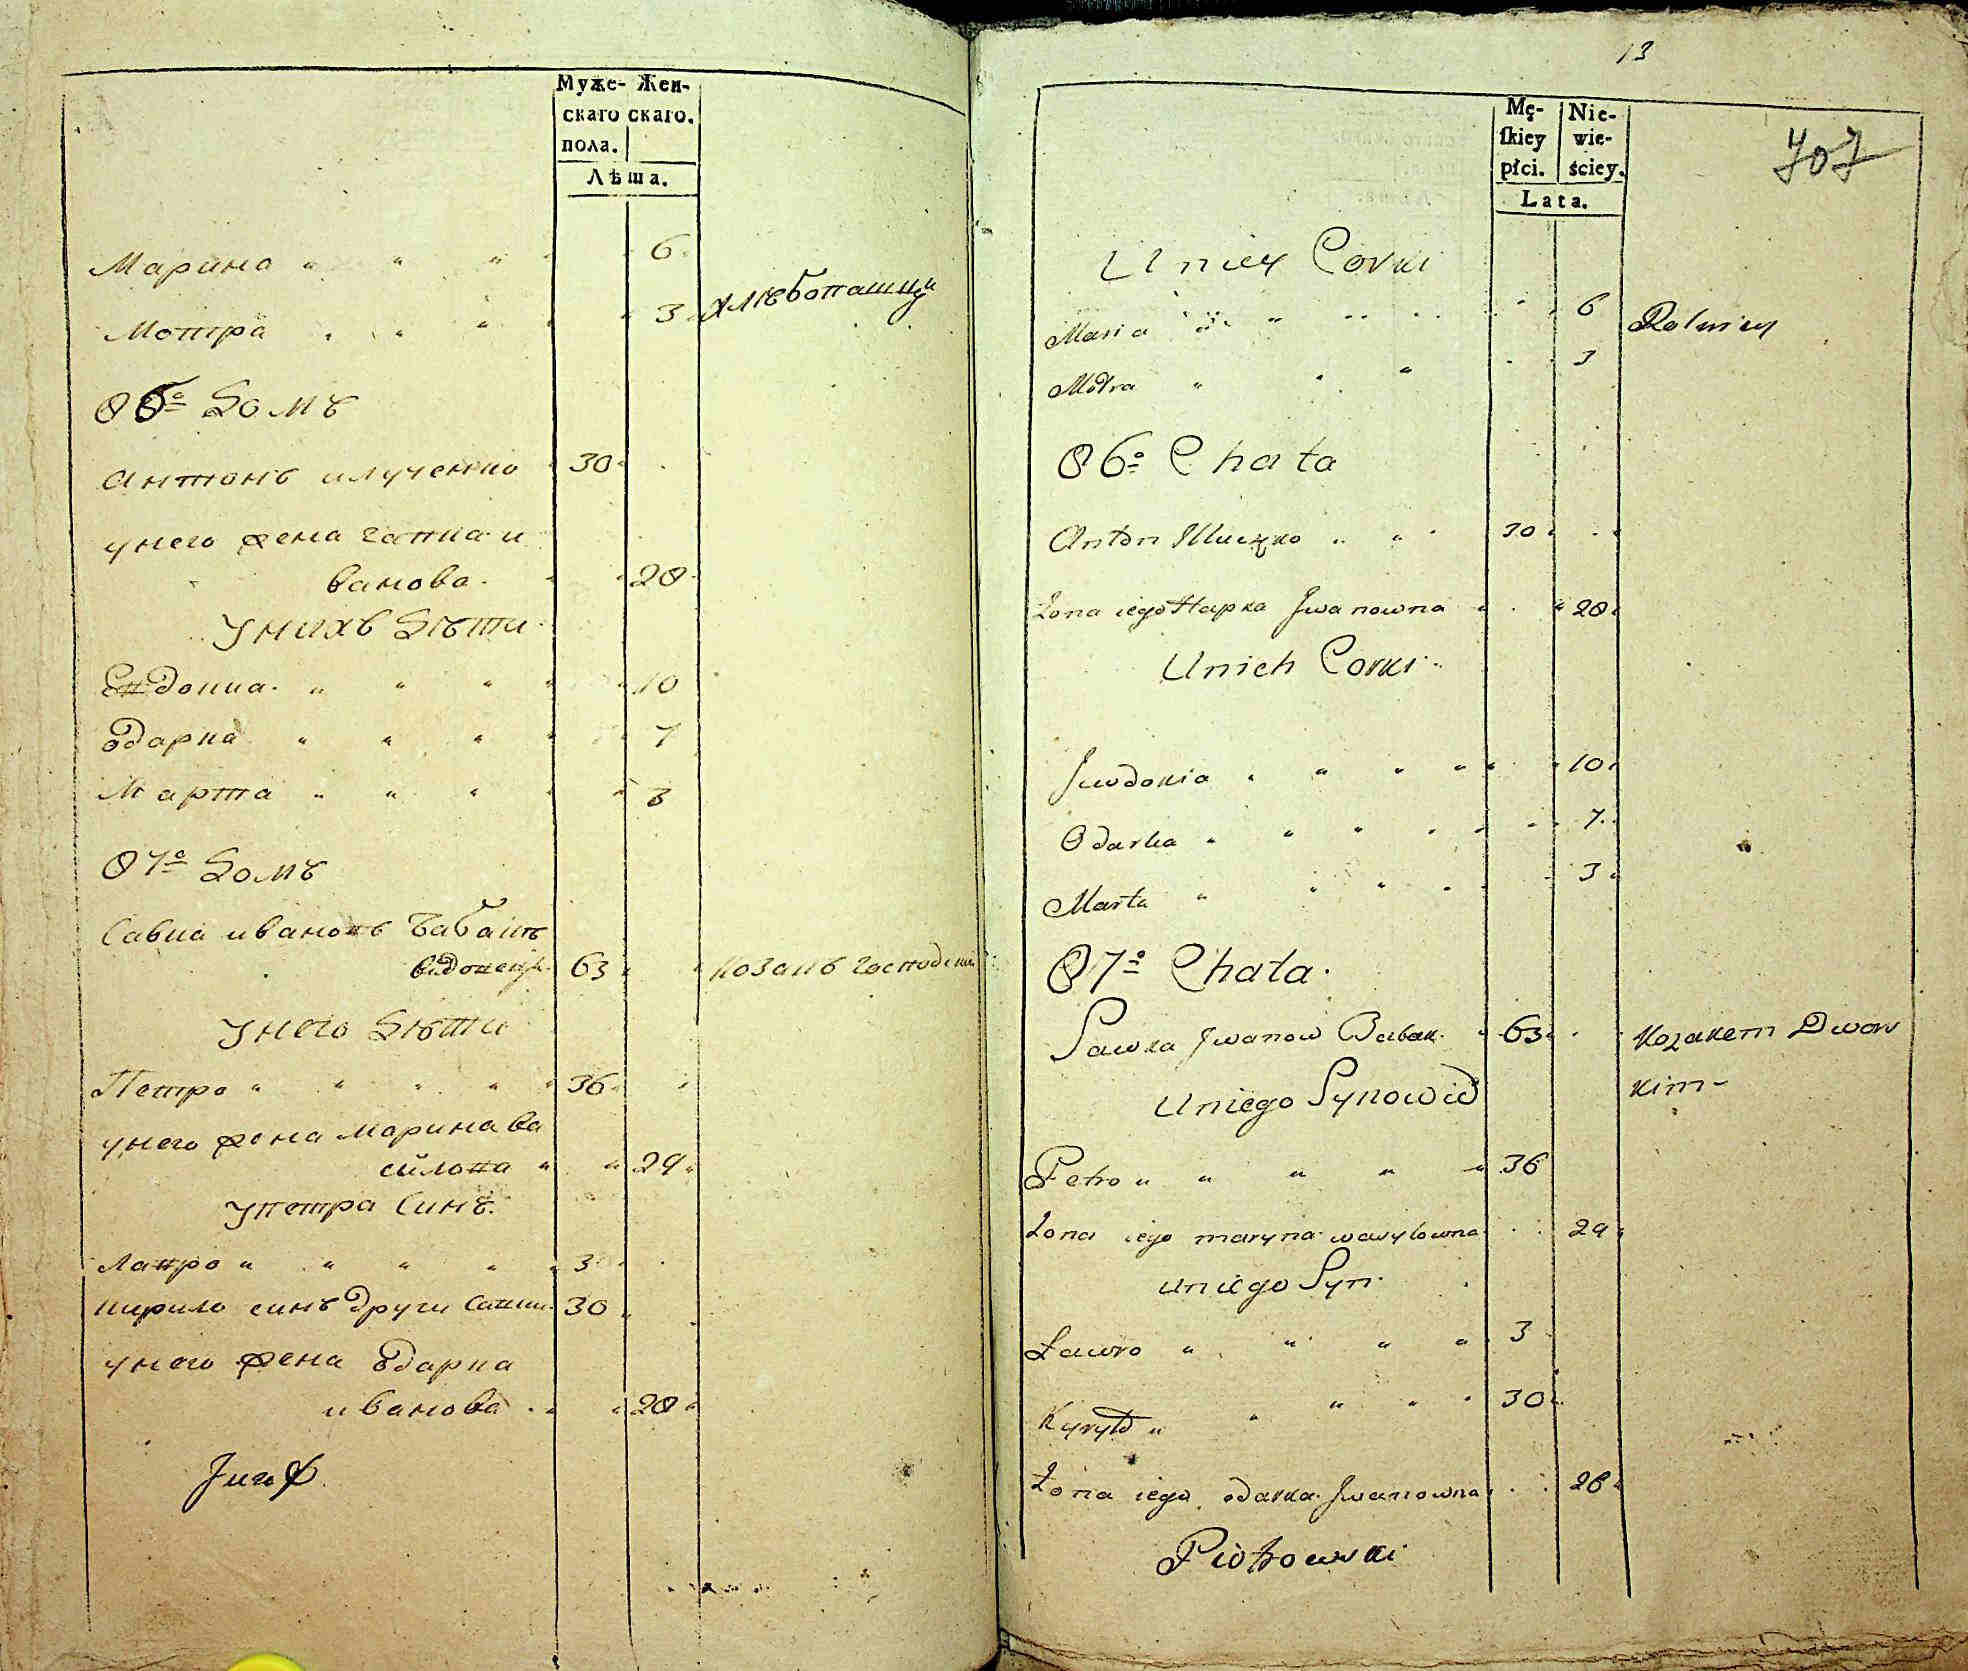 Муже- Жен-
скаго скаго.
пола.
Лѣта.
Марина " " " 6
Мотря " " " 3 хлѣбопашци
86º Домъ
Антонъ илученко 30
унего жена гапка и
ванова 28
Унихъ Дѣти
Евдокиа " " " 10
Одарка " " " 7
Марта " " " 3
87º Домъ
Савка ивановъ Бабакъ
63 козакъ
Унего Дѣти
Петро " " " " 36
унего жена марина ва
силова " " 29
Упетра Синъ
Лавро " " " " 3
Кирило синъ други 30
унего жена Одарка
иванова " 28
13
707
Mę- Nie-
skiey wie-
płci. ściey.
Lata.
Uniey Corki
Maria " " 6 Rolnicy
Motra " " 3
86º Chata
Anton Iluczko " " 30
Zona iego Hapka Jwanowna " 28
Unich Corki
Jewdokia " " " " 10
Odarka " " " " 7
Marta " " " 3
87º Chata
Sawka Jwanow Babak 63 Kozakem Dwors
Uniego Synowie kim
Petro " " " " 36
Zona iego maryna wasylowna 29
uniego Syn
Ławro " " " " 3
Kyryło " " " " 30
Zona iego odarka Jwanowna 28
Piotrowski